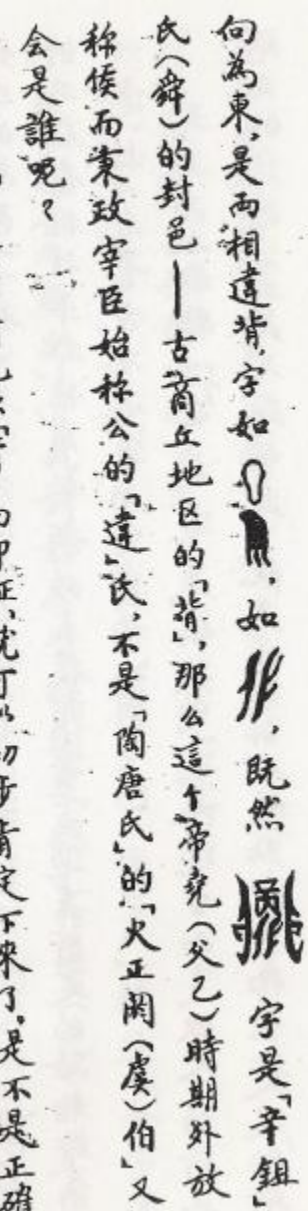 向為東，是两相違背，字如，如，既然字是「辛鉏」
氏（舜）的封邑——古商丘地区的「背」，那么這个帝尧（父乙）時期外放
称侯而秉政宰臣始称公的「違」氏，不是「陶唐氏」的「火正阏（虞）伯」又
会是誰呢？
印正，就可以初步肯定下來了。是不是正確